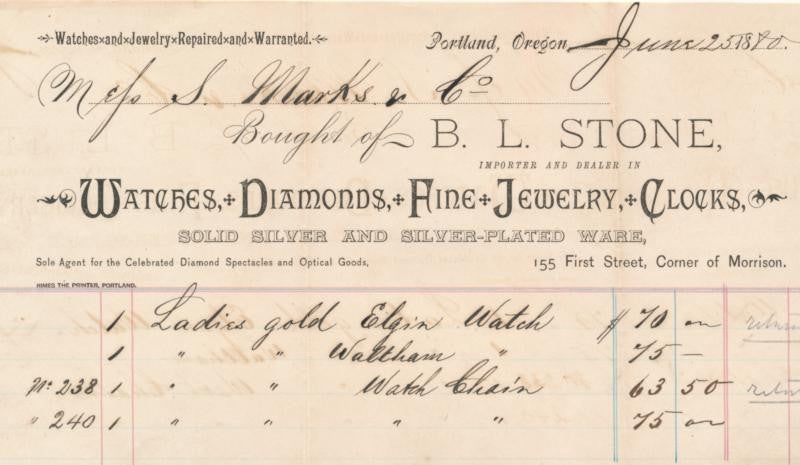 Watches×and×Jewelry×Repaired×and×Warranted.
Portland, Oregon, June 25 1880.
Mess S. Marks & Co
Bought of B. L. STONE,
IMPORTER AND DEALER IN
WATCHES, DIAMONDS, FINE JEWELRY, CLOCKS,
SOLID SILVER AND SILVER-PLATED WARE,
Sole Agent for the Celebrated Diamond Spectacles and Optical Goods, 155 First Street, Corner of Morrison.
HIMES THE PRINTER, PORTLAND.
1 Ladies gold Elgin Watch $ 70 00
1 " " Waltham " 75 —
No. 238 1 " " Watch Chain 63 50
" 240 1 " " " " 75 00